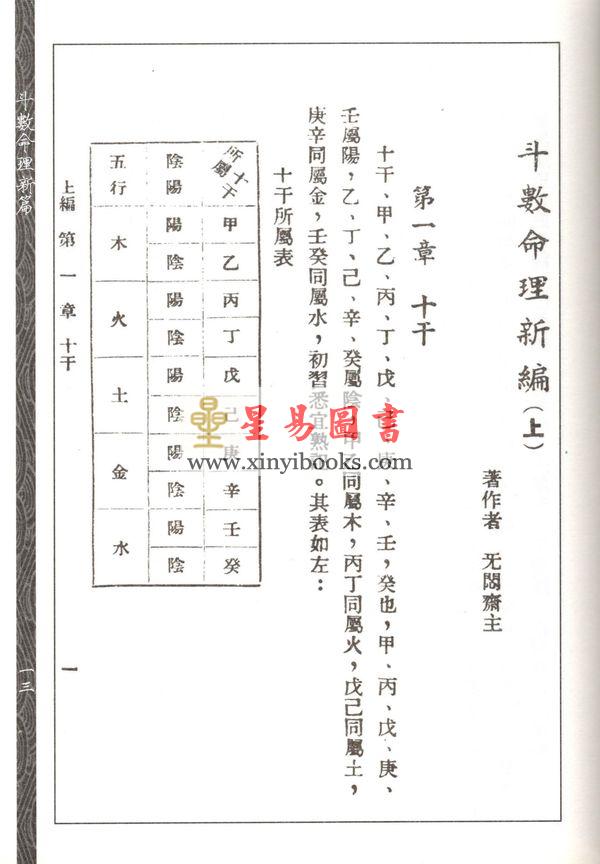 斗數命理新編(上)
著作者 无悶齋主
第一章 十干
十干、甲、乙、丙、丁、戊、己、庚、辛、壬,癸也,甲、丙、戊、庚、
壬屬陽,乙、丁、己、辛、癸屬陰,甲乙同屬木,丙丁同屬火,戊己同屬土,
庚辛同屬金,壬癸同屬水,初習悉宜熟記。其表如左:
十干所屬表
十干 所屬 甲 乙 丙 丁 戊 己 庚 辛 壬 癸
陰陽 陽 陰 陽 陰 陽 陰 陽 陰 陽 陰
五行 木 火 土 金 水
上編 第一章 十干
一
斗數命理新篇
一三
星易圖書
www.xinyibooks.com